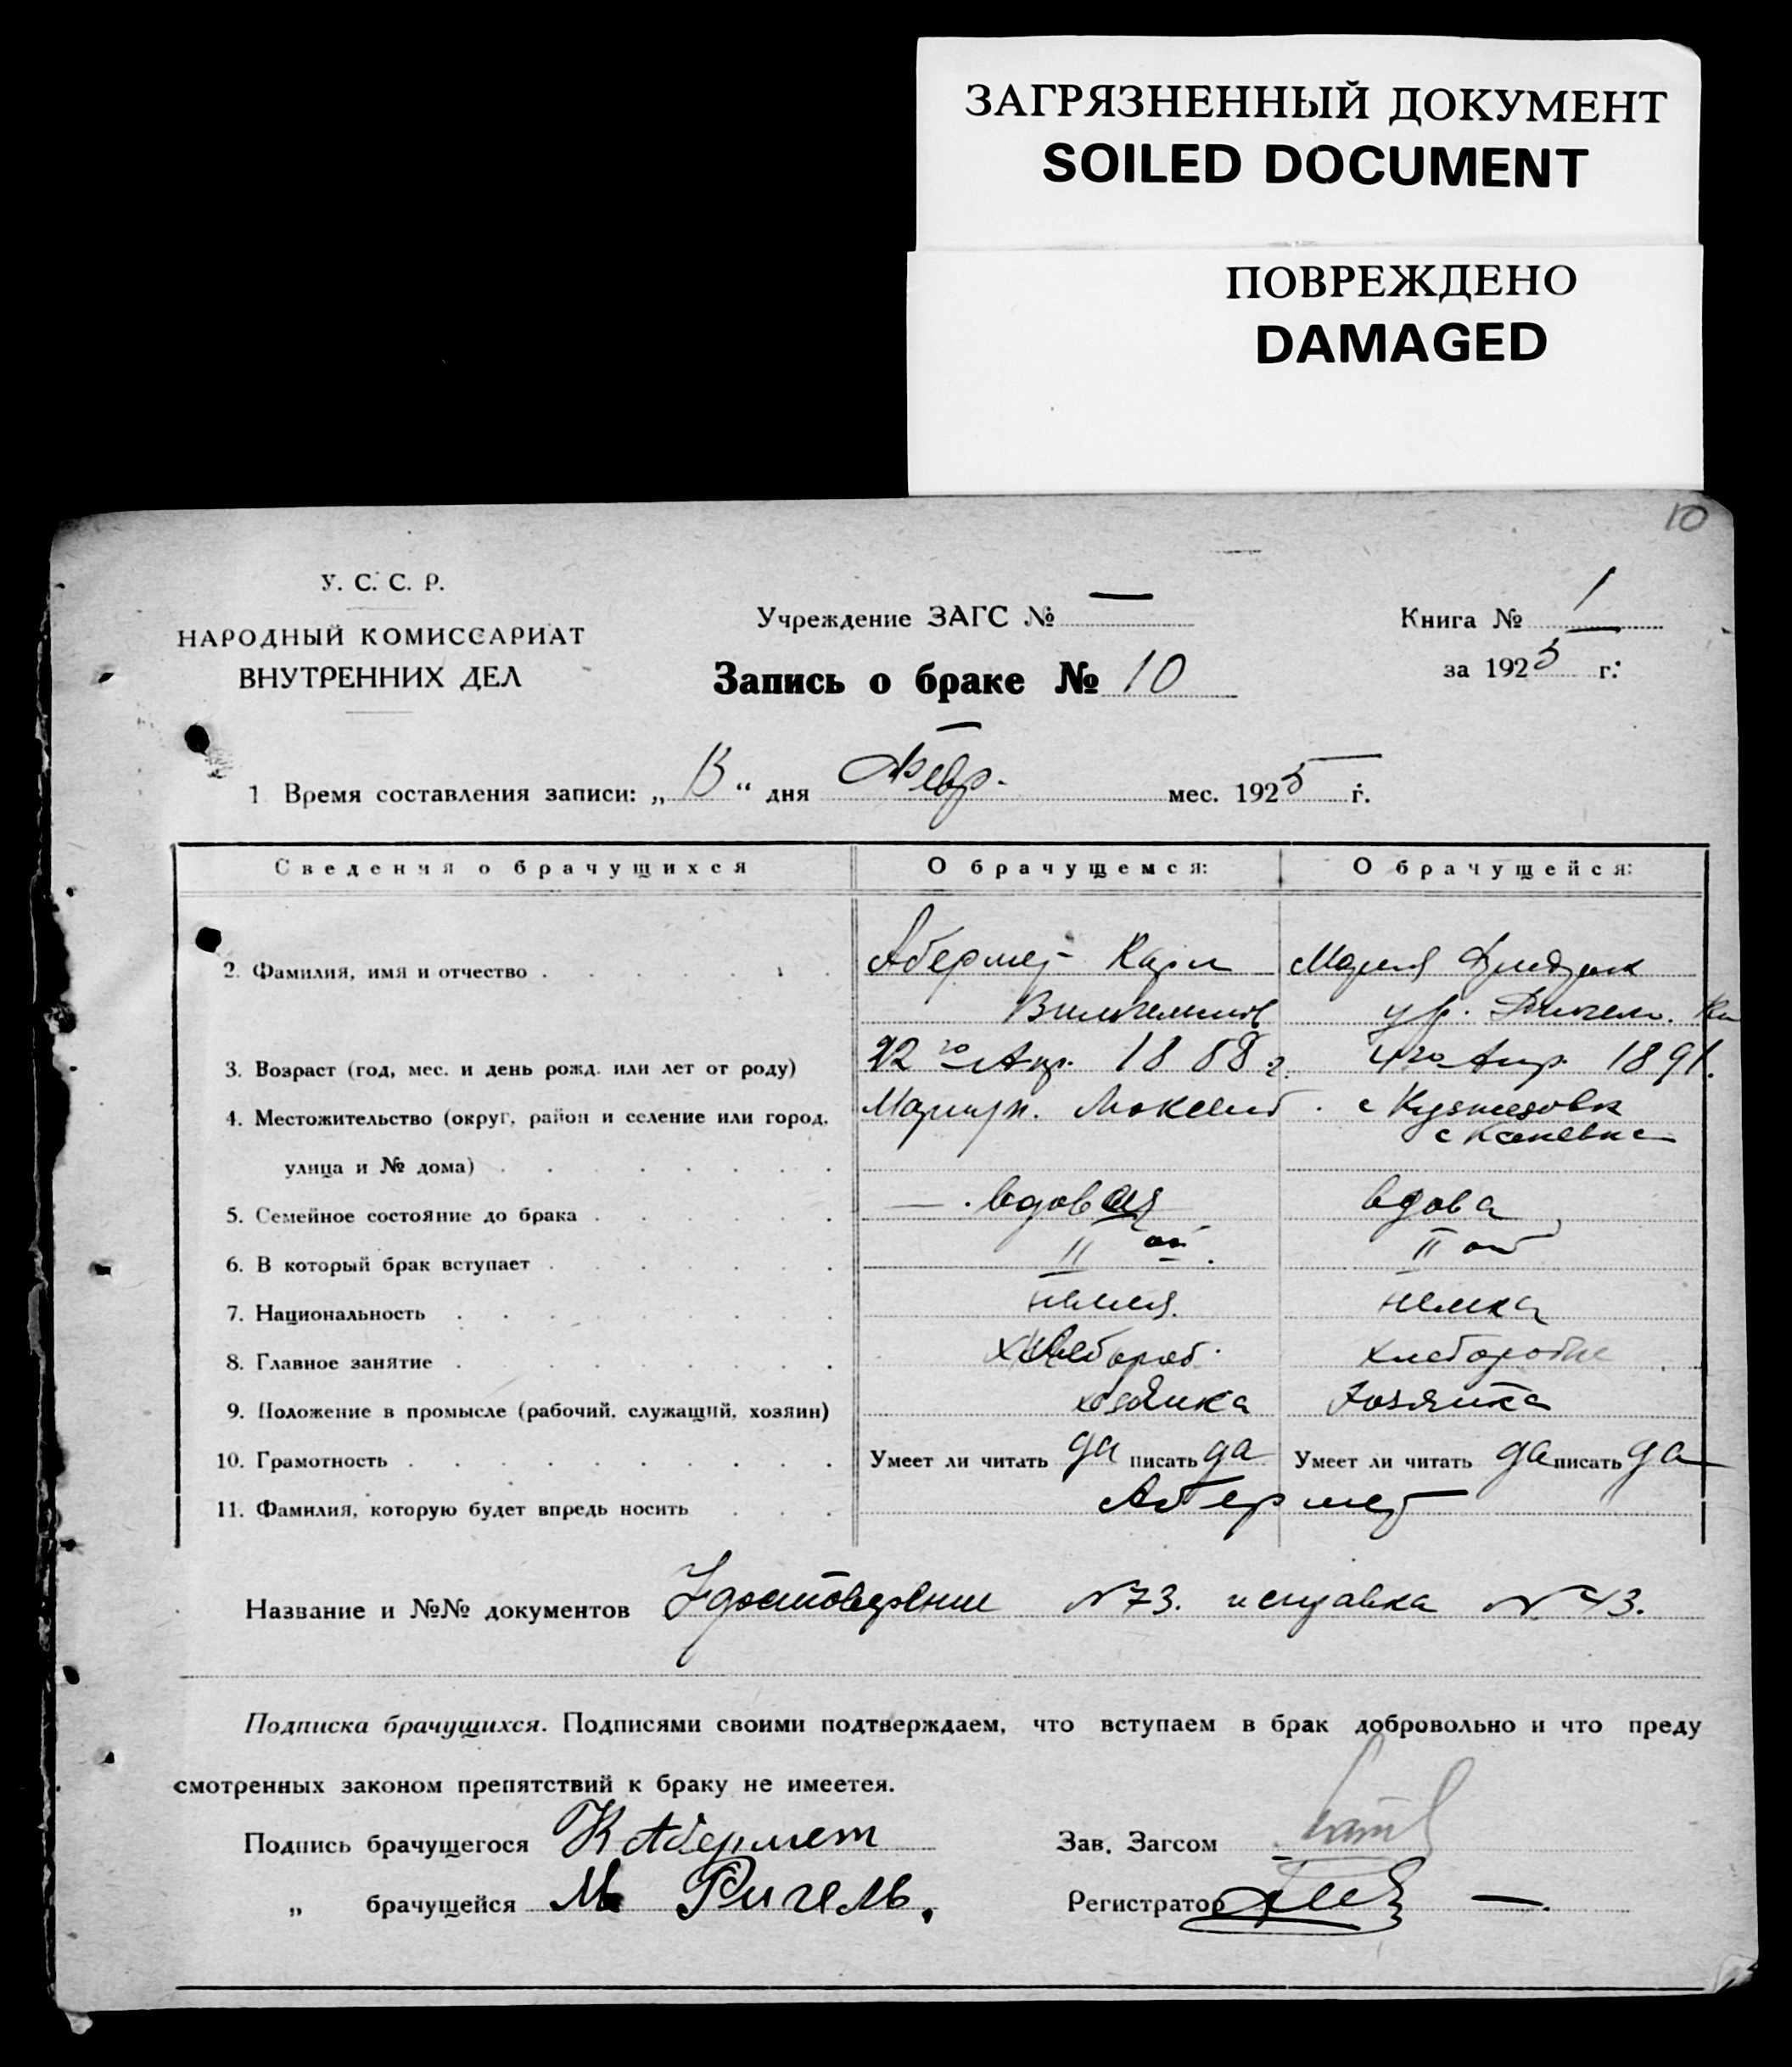 ЗАГРЯЗНЕННЫЙ ДОКУМЕНТ
SOILED DOCUMENT
ПОВРЕЖДЕНО
DAMAGED
10
У. С. С. Р.
НАРОДНЫЙ КОМИССАРИАТ
ВНУТРЕННИХ ДЕЛ
Учреждение ЗАГС № —
Запись о браке № 10
Книга № 1
за 1925 г.
1 Время составления записи: „13“ дня Февр. мес. 1925 г.
Сведения о брачущихся О брачущемся: О брачущейся:
2. Фамилия, имя и отчество Абермет Карл Мария
Вильгельмов ур.
3. Возраст (год, мес. и день рожд. или лет от роду) 22го Апр. 1888 г. 4го Апр. 1891.
4. Местожительство (округ, район и селение или город, Мариуп. с Кузнецовк
улица и № дома) с
5. Семейное состояние до брака — вдова
6. В который брак вступает II ой. II ой
7. Национальность немец. немка
8. Главное занятие хлебороб. хлебороб
9. Положение в промысле (рабочий, служащий, хозяин) хозяйка хозяйка
10. Грамотность Умеет ли читать да писать да Умеет ли читать да писать да
11. Фамилия, которую будет впредь носить Абермет
Название и №№ документов Удостоверение №73. и справка № 43.
Подписка брачущихся. Подписями своими подтверждаем, что вступаем в брак добровольно и что преду
смотренных законом препятствий к браку не имеетея.
Подпись брачущегося К Абермет Зав. Загсом
„ брачущейся М Ригель. Регистратор